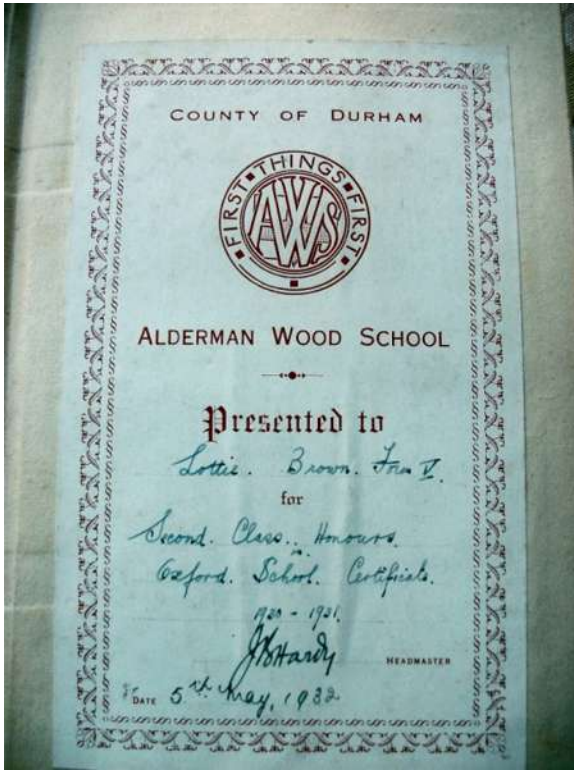 COUNTY OF DURHAM
FIRST THINGS FIRST
AWS
ALDERMAN WOOD SCHOOL
Presented to
Lottie. Brown. Form V.
for
Second. Class.. Honours.
in
Oxford. School. Certificate.
1930 - 1931.
J B Hardy HEADMASTER
DATE 5th May, 1932